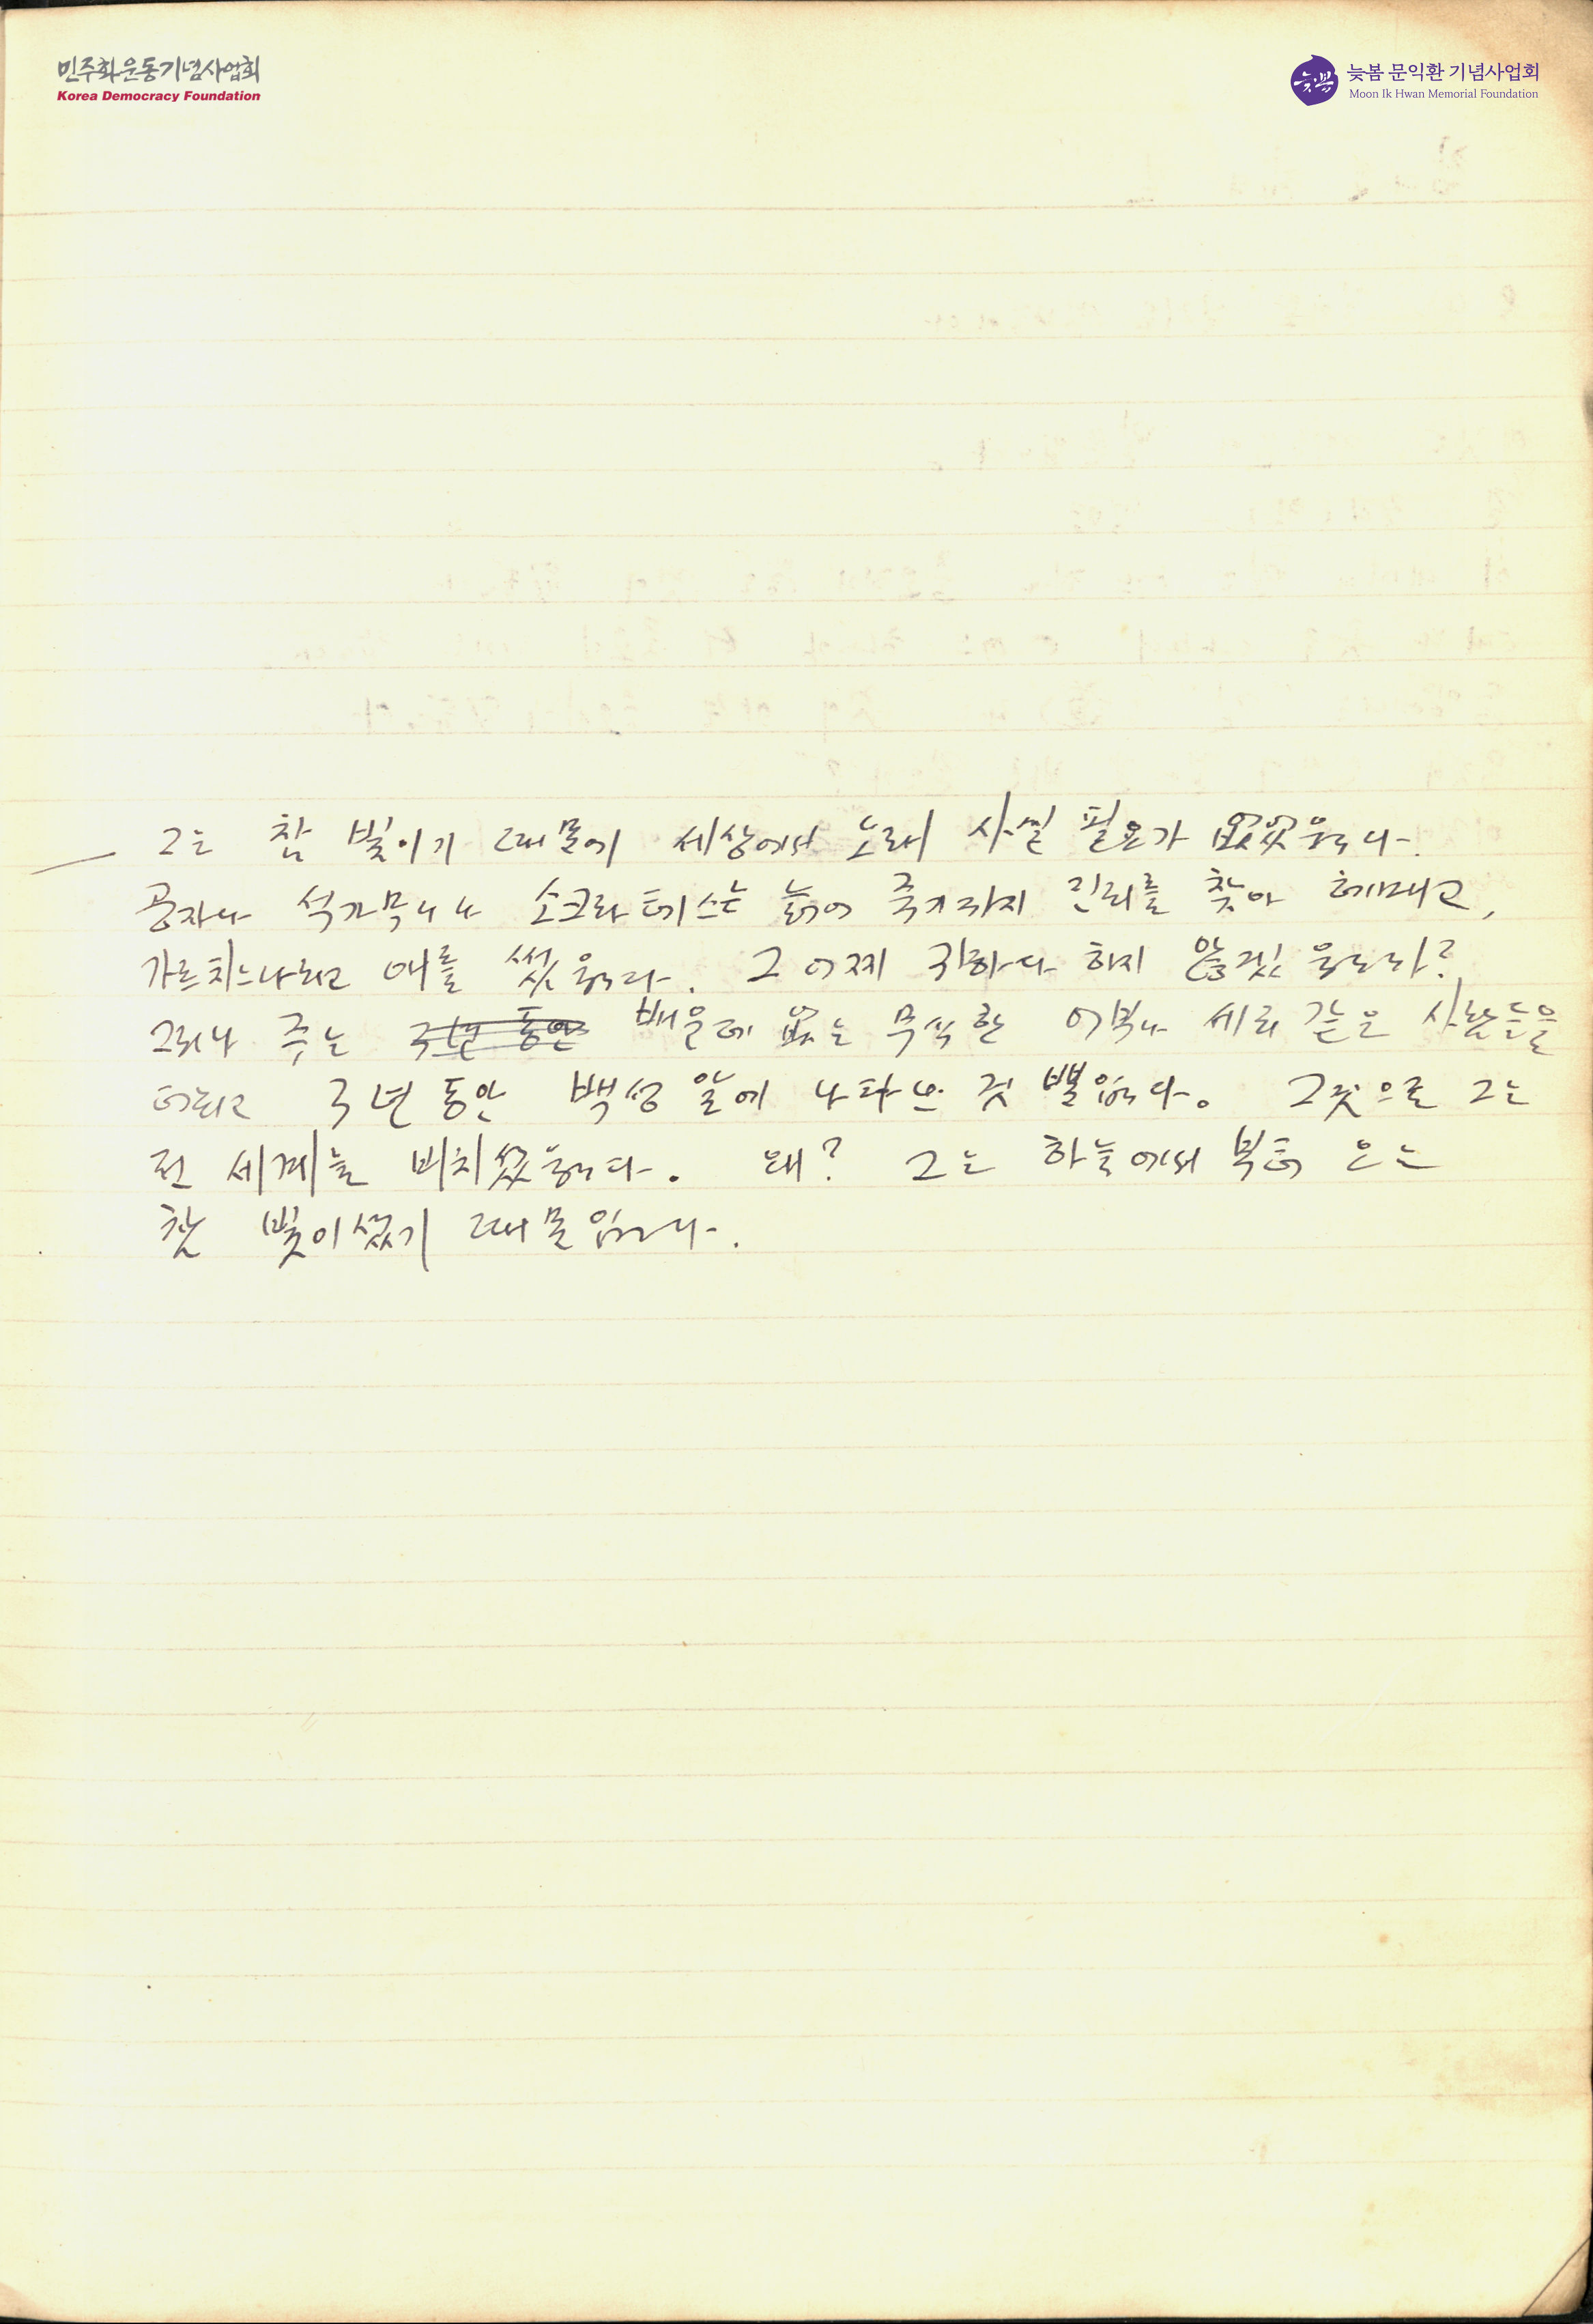 민주화운동기념사업회
Korea Democracy Foundation
늦봄 늦봄 문익환 기념사업회
Moon Ik Hwan Memorial Foundation
그는 참 빛이기 때문에 세상에서 오래 사실 필요가 없었읍니다.
공자나 석가목니나 소크라테스는 늙어 죽기까지 진리를 찾아 헤매고,
가르치느라고 애를 썼읍니다. 그 어찌 귀하다 하지 않겠읍니까?
그러나 주는 3년 동안 배운데 없는 무식한 어부나 세리 같은 사람들을
데리고 3년 동안 백성 앞에 나타난 것 뿐입니다. 그것으로 그는
전 세계를 비치셨읍니다. 왜? 그는 하늘에서 부터 오는
참 빛이셨기 때문입니다.